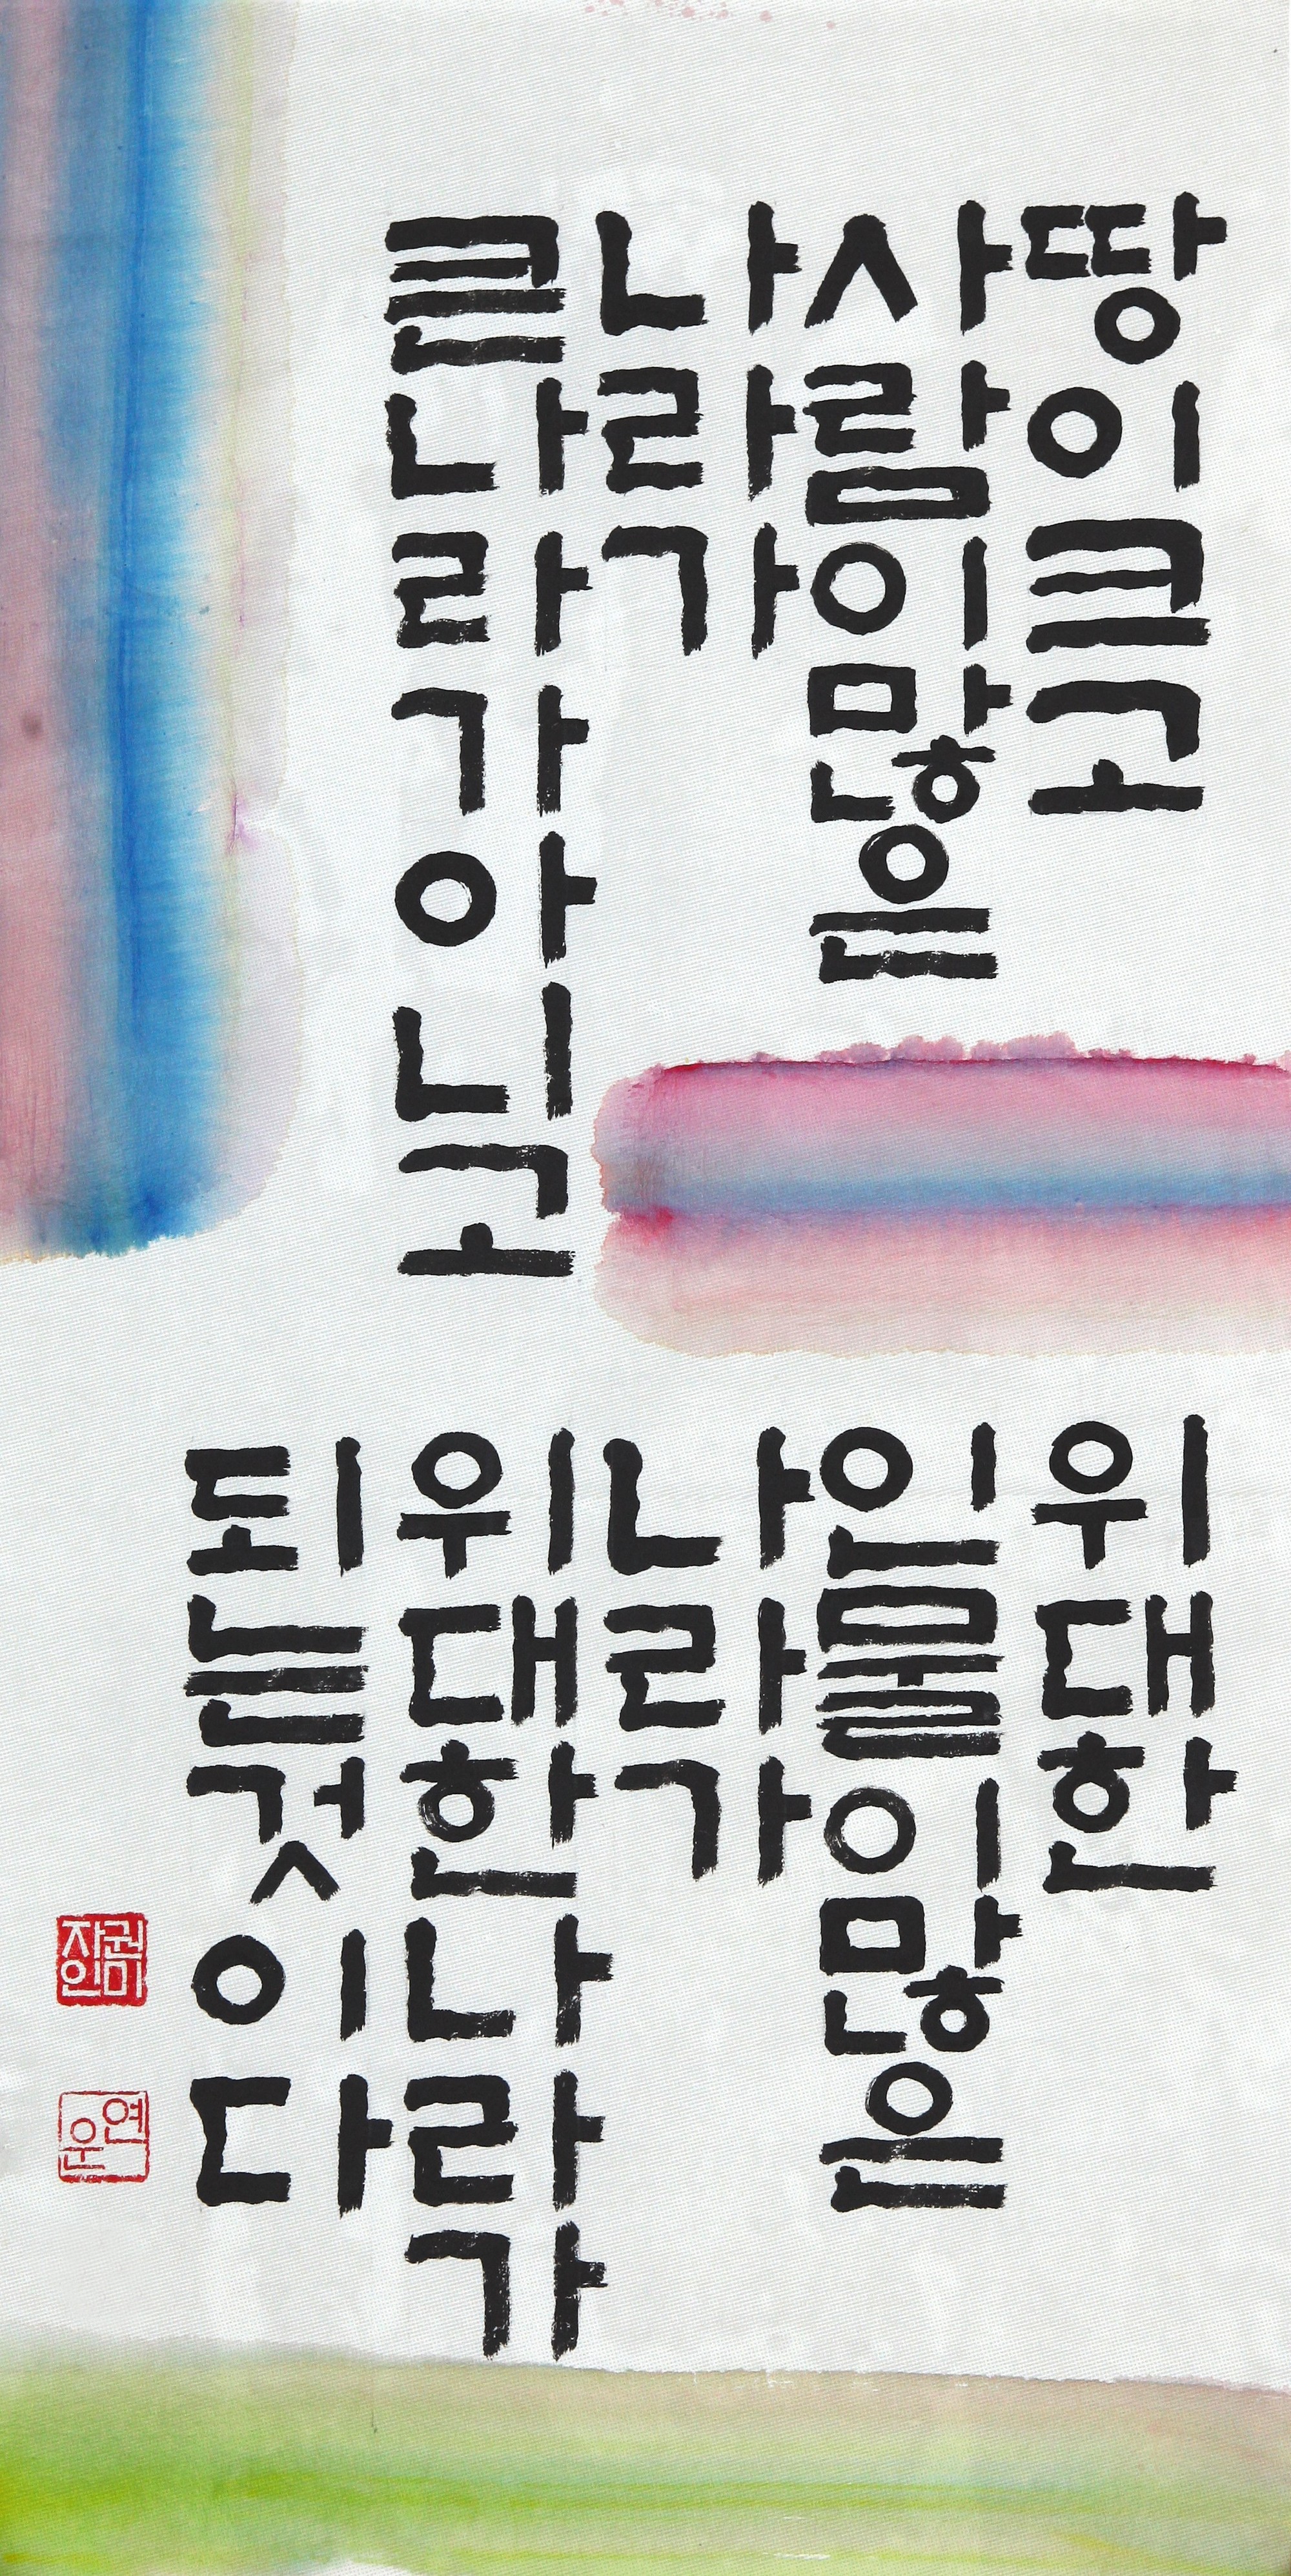 땅이크고
사람이많은
나라가
큰나라가아니고
위대한
인물이많은
나라가
위대한나라가
되는것이다
권미
자인
연
운